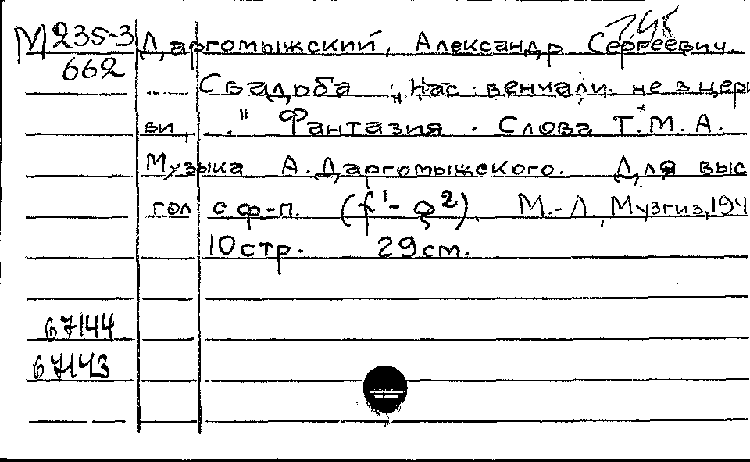 М 235-3 Даргомыжский, Александр Сергеевич.
662 Свадьба „Нас венчали не в цер
ви, ." Фантазия. Слова Т.М.А.
Музыка А. Даргомыжского. Для выс
гол с ф-п. (f¹-g²). М.-Л, Музгиз, 194
10 стр. 29 см.
67144
67143